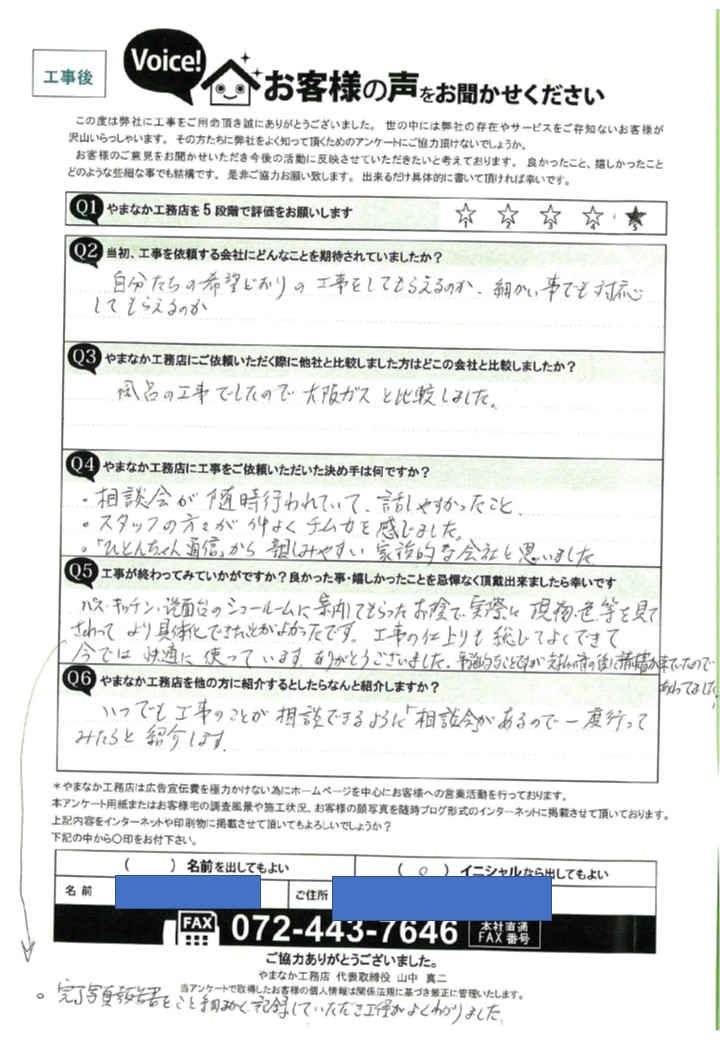 工事後
Voice!
お客様の声をお聞かせください
この度は弊社に工事をご用命頂き誠にありがとうございました。 世の中には弊社の存在やサービスをご存知ないお客様が
沢山いらっしゃいます。 その方たちに弊社をよく知って頂くためのアンケートにご協力頂けないでしょうか。
お客様のご意見をお聞かせいただき今後の活動に反映させていただきたいと考えております。 良かったこと、嬉しかったこと
どのような些細な事でも結構です。 是非ご協力お願い致します。 出来るだけ具体的に書いて頂ければ幸いです。
Q1 やまなか工務店を5段階で評価をお願いします ☆1 ☆2 ☆3 ☆4 ★5
Q2 当初、工事を依頼する会社にどんなことを期待されていましたか?
自分たちの希望どおりの工事をしてもらえるのか、細かい事でも対応
してもらえるのか
Q3 やまなか工務店にご依頼いただく際に他社と比較しました方はどこの会社と比較しましたか?
風呂の工事でしたので大阪ガスと比較しました。
Q4 やまなか工務店に工事をご依頼いただいた決め手は何ですか?
・相談会が随時行われていて、話しやすかったこと
・スタッフの方々が仲よくチームカを感じました。
・「ひとんちゃん通信」から親しみやすい家族的な会社と思いました
Q5 工事が終わってみていかがですか?良かった事・嬉しかったことを忌憚なく頂戴出来ましたら幸いです
バス・キッチン・洗面台のショールームに案内してもらったお陰で、実際に現物、色等を見て
さわってより具体化できたことがよかったです。工事の仕上りも総じてよくできて
今では快適に使っています。ありがとうございました。
Q6 やまなか工務店を他の方に紹介するとしたらなんと紹介しますか?
いつでも工事のことが相談できるように「相談会」があるので一度行って
みたらと紹介します。
*やまなか工務店は広告宣伝費を極力かけない為にホームページを中心にお客様への営業活動を行っております。
本アンケート用紙またはお客様宅の調査風景や施工状況、お客様の顔写真を随時ブログ形式のインターネットに掲載させて頂いております。
上記内容をインターネットや印刷物に掲載させて頂いてもよろしいでしょうか?
下記の中から〇印をお付下さい。
( ) 名前を出してもよい ( ○ ) イニシャルなら出してもよい
名前 ご住所
FAX 072-443-7646 本社直通 FAX番号
ご協力ありがとうございました。
やまなか工務店 代表取締役 山中 真二
当アンケートで取得したお客様の個人情報は関係法規に基づき厳正に管理いたします。
。完了写真報告書をこと細かく記録していただき工程がよくわかりました。